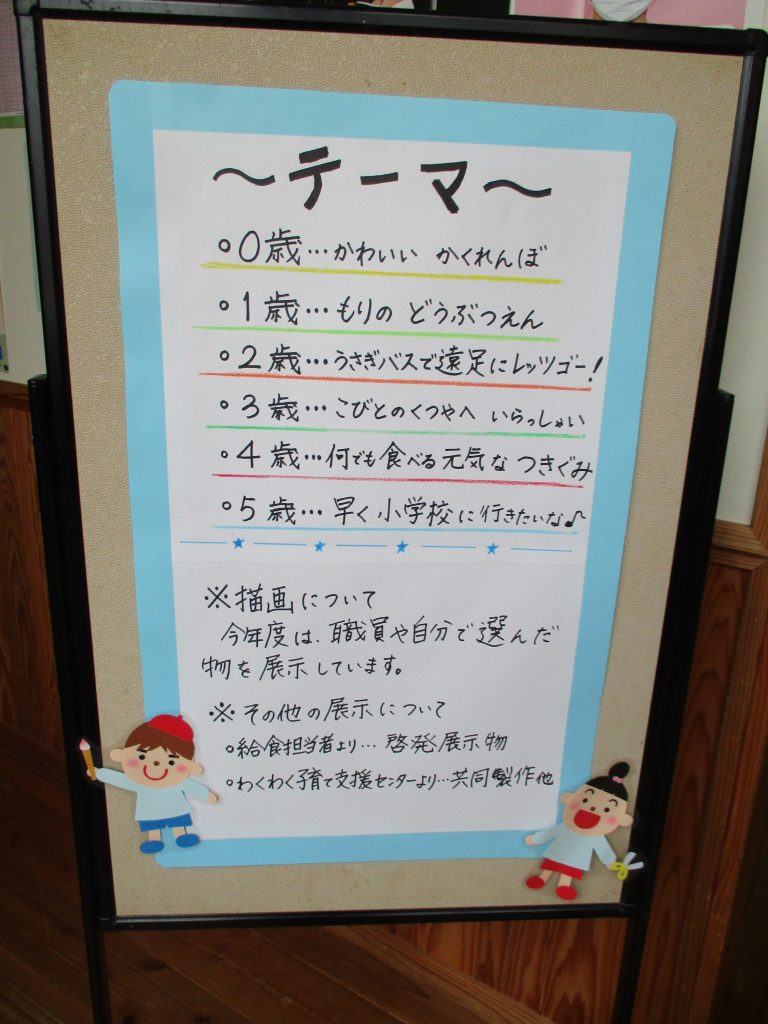 ～テーマ～
○0歳…かわいい かくれんぼ
○1歳…もりの どうぶつえん
○2歳…うさぎバスで遠足にレッツゴー！
○3歳…こびとのくつやへ いらっしゃい
○4歳…何でも食べる元気な つきぐみ
○5歳…早く小学校に行きたいな♪
※描画について
今年度は、職員や自分で選んだ
物を展示しています。
※その他の展示について
○給食担当者より…啓発展示物
○わくわく子育て支援センターより…共同製作他